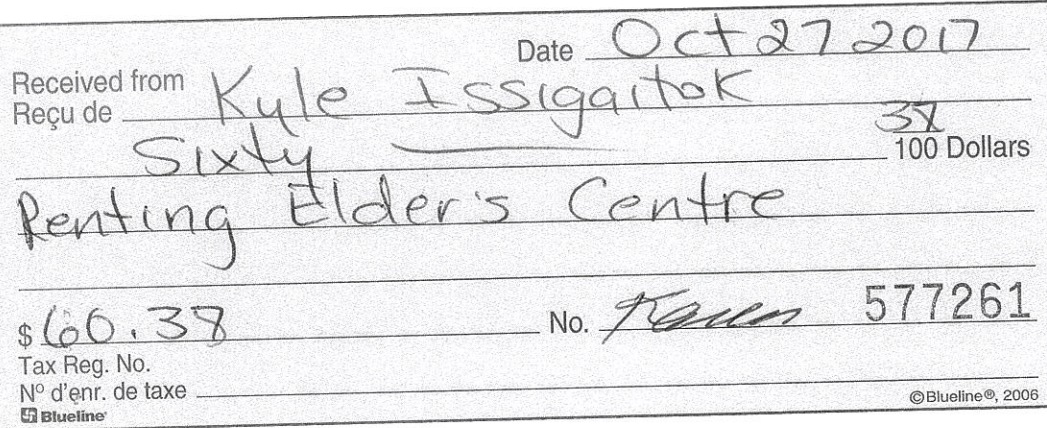 Date Oct 27 2017
Received from
Reçu de Kyle Issigaitok
Sixty 38
100 Dollars
Renting Elder's Centre
$ 60.38 No. Karen 577261
Tax Reg. No.
Nº d'enr. de taxe
Blueline ©Blueline®, 2006